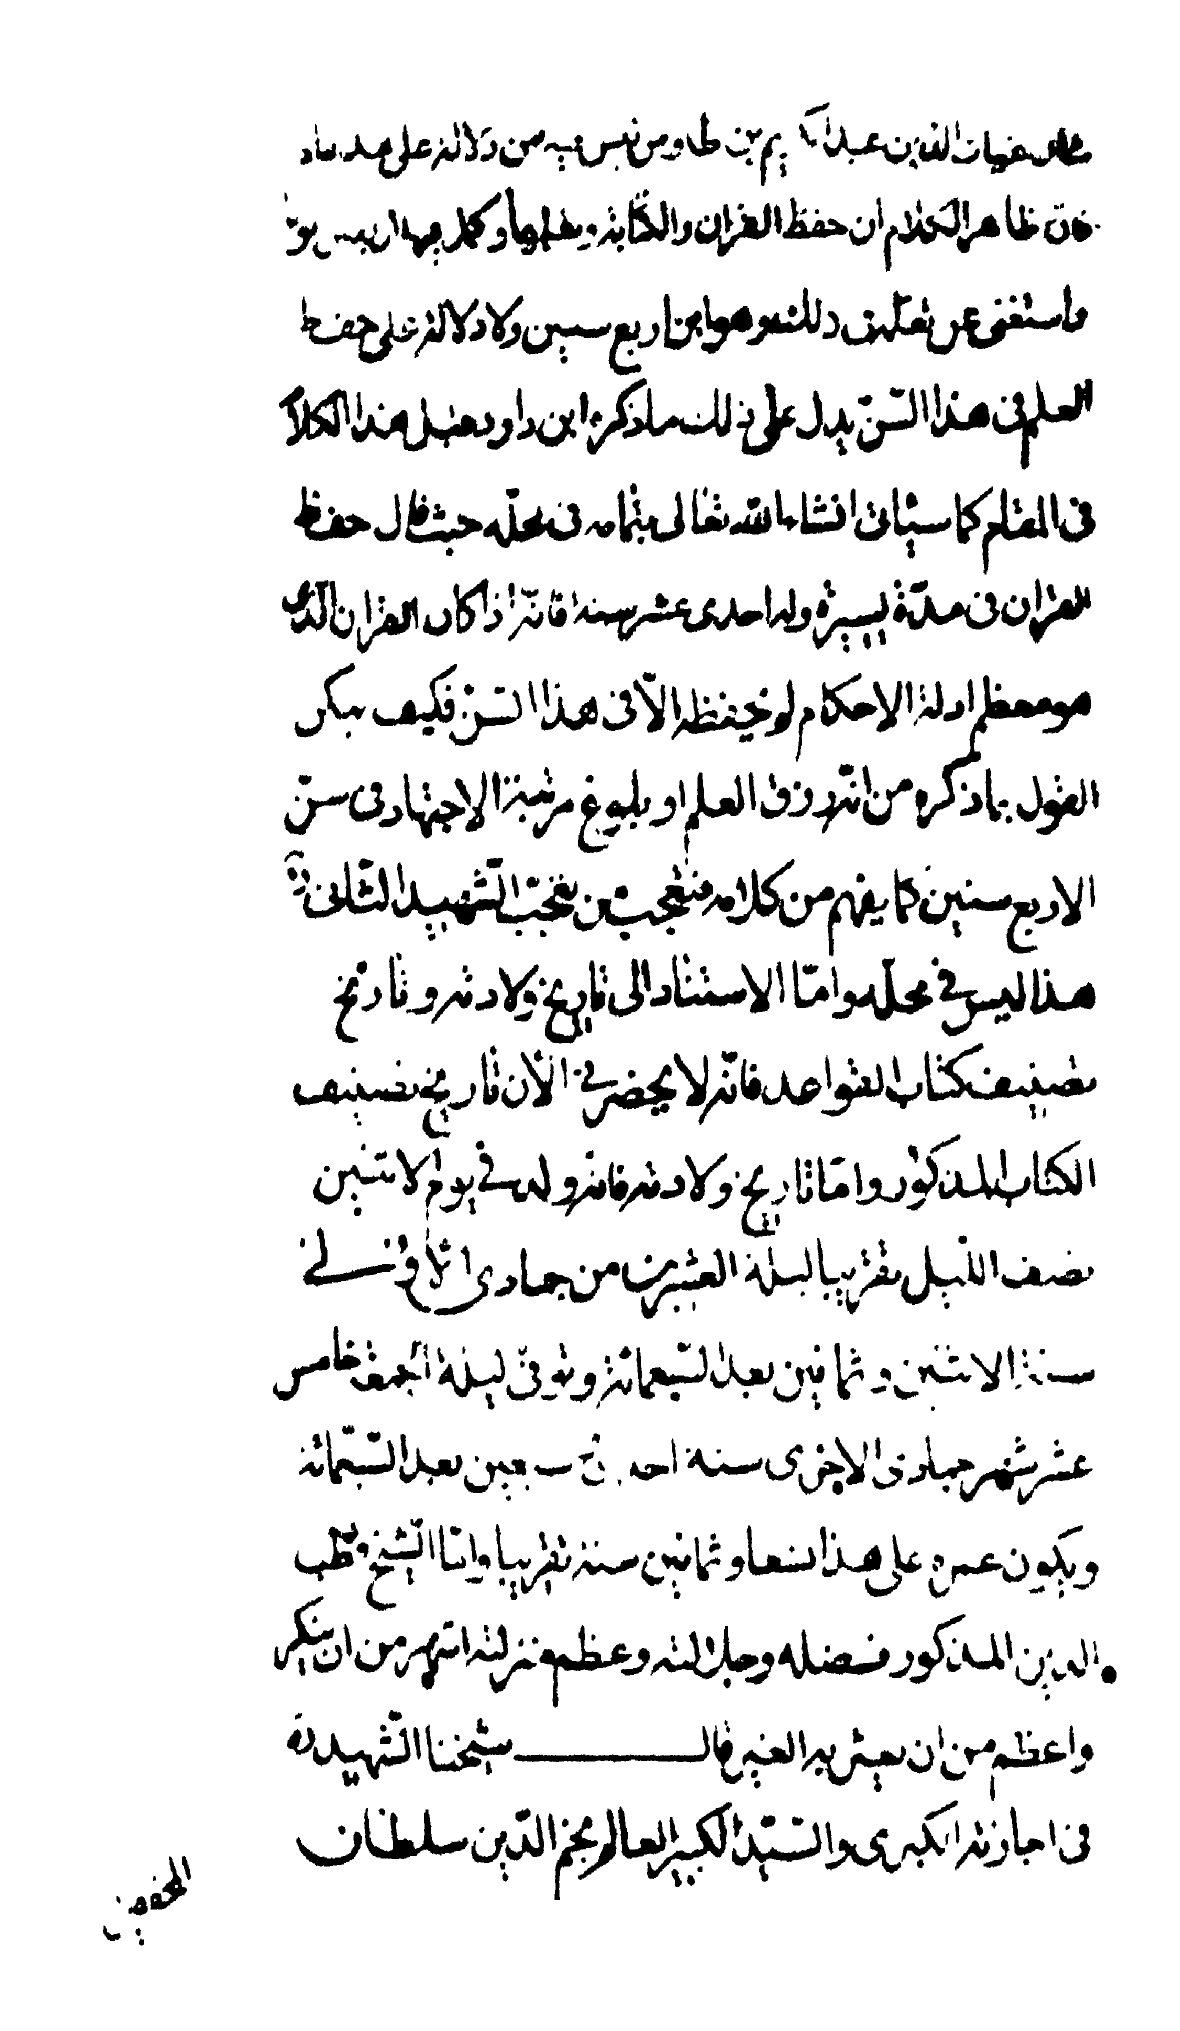 غياث الدين عبد الكريم بن طاوس ليس فيه من دلالة على
فان ظاهر الكلام ان حفظ القران والكتابة وتعلمها وكمل فيها اربعين يوما
واستغنى عن تعليق ذلك وهو ابن اربع سنين ولا دلالة على حفظ
العلم في هذا السن يدل على ذلك ما ذكره ابن داود قبل هذا الكلا
في المقام كما سيأتى انشاء الله تعالى بتمامه في محله حيث قال حفظ
القران في مدّة يسيرة وله احدى عشر سنة فانه اذا كان القران الذى
هو معظم ادلة الاحكام لم يحفظه الّا فى هذا السنّ فكيف يمكن
القول بما ذكره من انه رزق العلم او بلوغ مرتبة الاجتهاد فى سنّ
الاربع سنين كما يفهم من كلامه فتعجب من تعجّب الشهيد الثانى ره
هذا ليس في محلّه وامّا الاستناد الى تاريخ ولادته وتاريخ
تصنيف كتاب القواعد فانه لا يحضرني الأن تاريخ تصنيف
الكتاب المذكور وامّا تاريخ ولادته فانه ولد في يوم الاثنين
نصف الليل تقريبا ليلة العشرين من جمادى
سنة الاثنين وثمانين بعد السبعمائة وتوفى ليلة الجمعة خامس
عشر شهر جمادى الاخرى سنة احدى وسبعين بعد السبعمائة
ويكون عمره على هذا تسعا وثمانين سنة تقريبا وامّا الشيخ قطب
الدين المذكور ففضله وجلالته وعظم منزلته اشهر من ان ينكر
واعظم من ان يعثر به الغير قال شيخنا الشهيد ره
في اجازته الكبرى والسيّد الكبير العالم نجم الدّين سلطان
المحققين